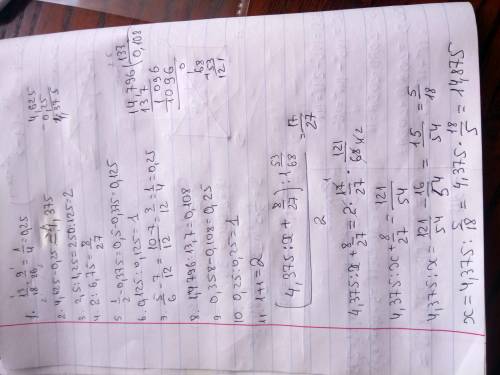 4,625
- 0,25
4,375
2. 4,625 - 0,25 = 4,375
3. 2,5 : 1,25 = 250 : 125 = 2
4. 2 : 6,75 = 8/27
5. 1/2 - 0,375 = 0,5 - 0,375 = 0,125
6. 0,125 : 0,125 = 1
7. 5/6 - 7/12 = (10 - 7)/12 = 3/12 = 1/4 = 0,25
8. 14,796 : 13,7 = 0,108
9. 0,358 - 0,108 = 0,25
10. 0,25 : 0,25 = 1
11. 1 + 1 = 2
1096
1096
0
68
+ 53
121
(4,375 : x + 8/27) : 1 53/68
2
= 17/27
4,375 : x + 8/27 = 2 · 17/27 · 121/68
4,375 : x + 8/27 = 121/54
4,375 : x = 121/54 - 16/54 = 15/54 = 5/18
x = 4,375 : 5/18 = 4,375 · 18/5 = 14,875